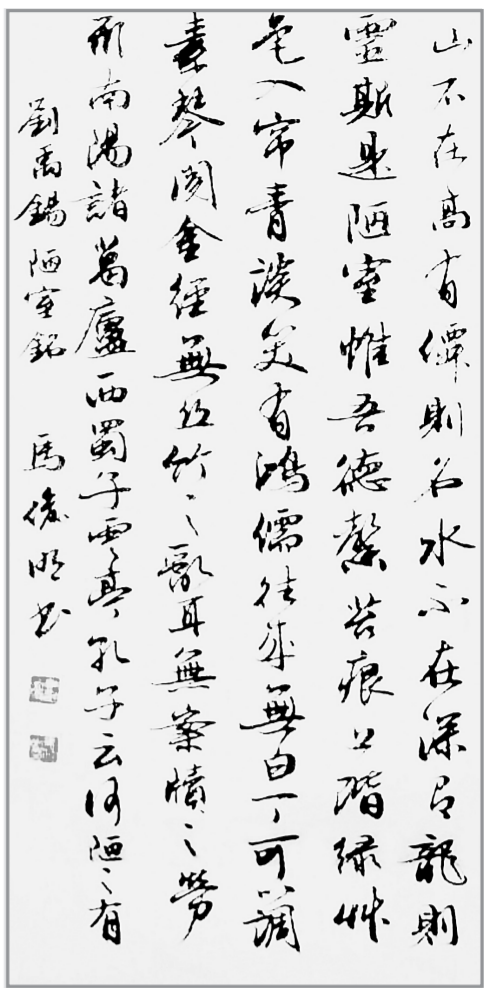 山不在高有僊則名水不在深有龍則
靈斯是陋室惟吾德馨苔痕上階緑艸
色入帘青談笑有鴻儒往來無白丁可調
素琴閱金經無丝竹之亂耳無案牘之勞
形南陽諸葛廬西蜀子雲亭孔子云何陋之有
劉禹錫陋室銘 馬俊明书